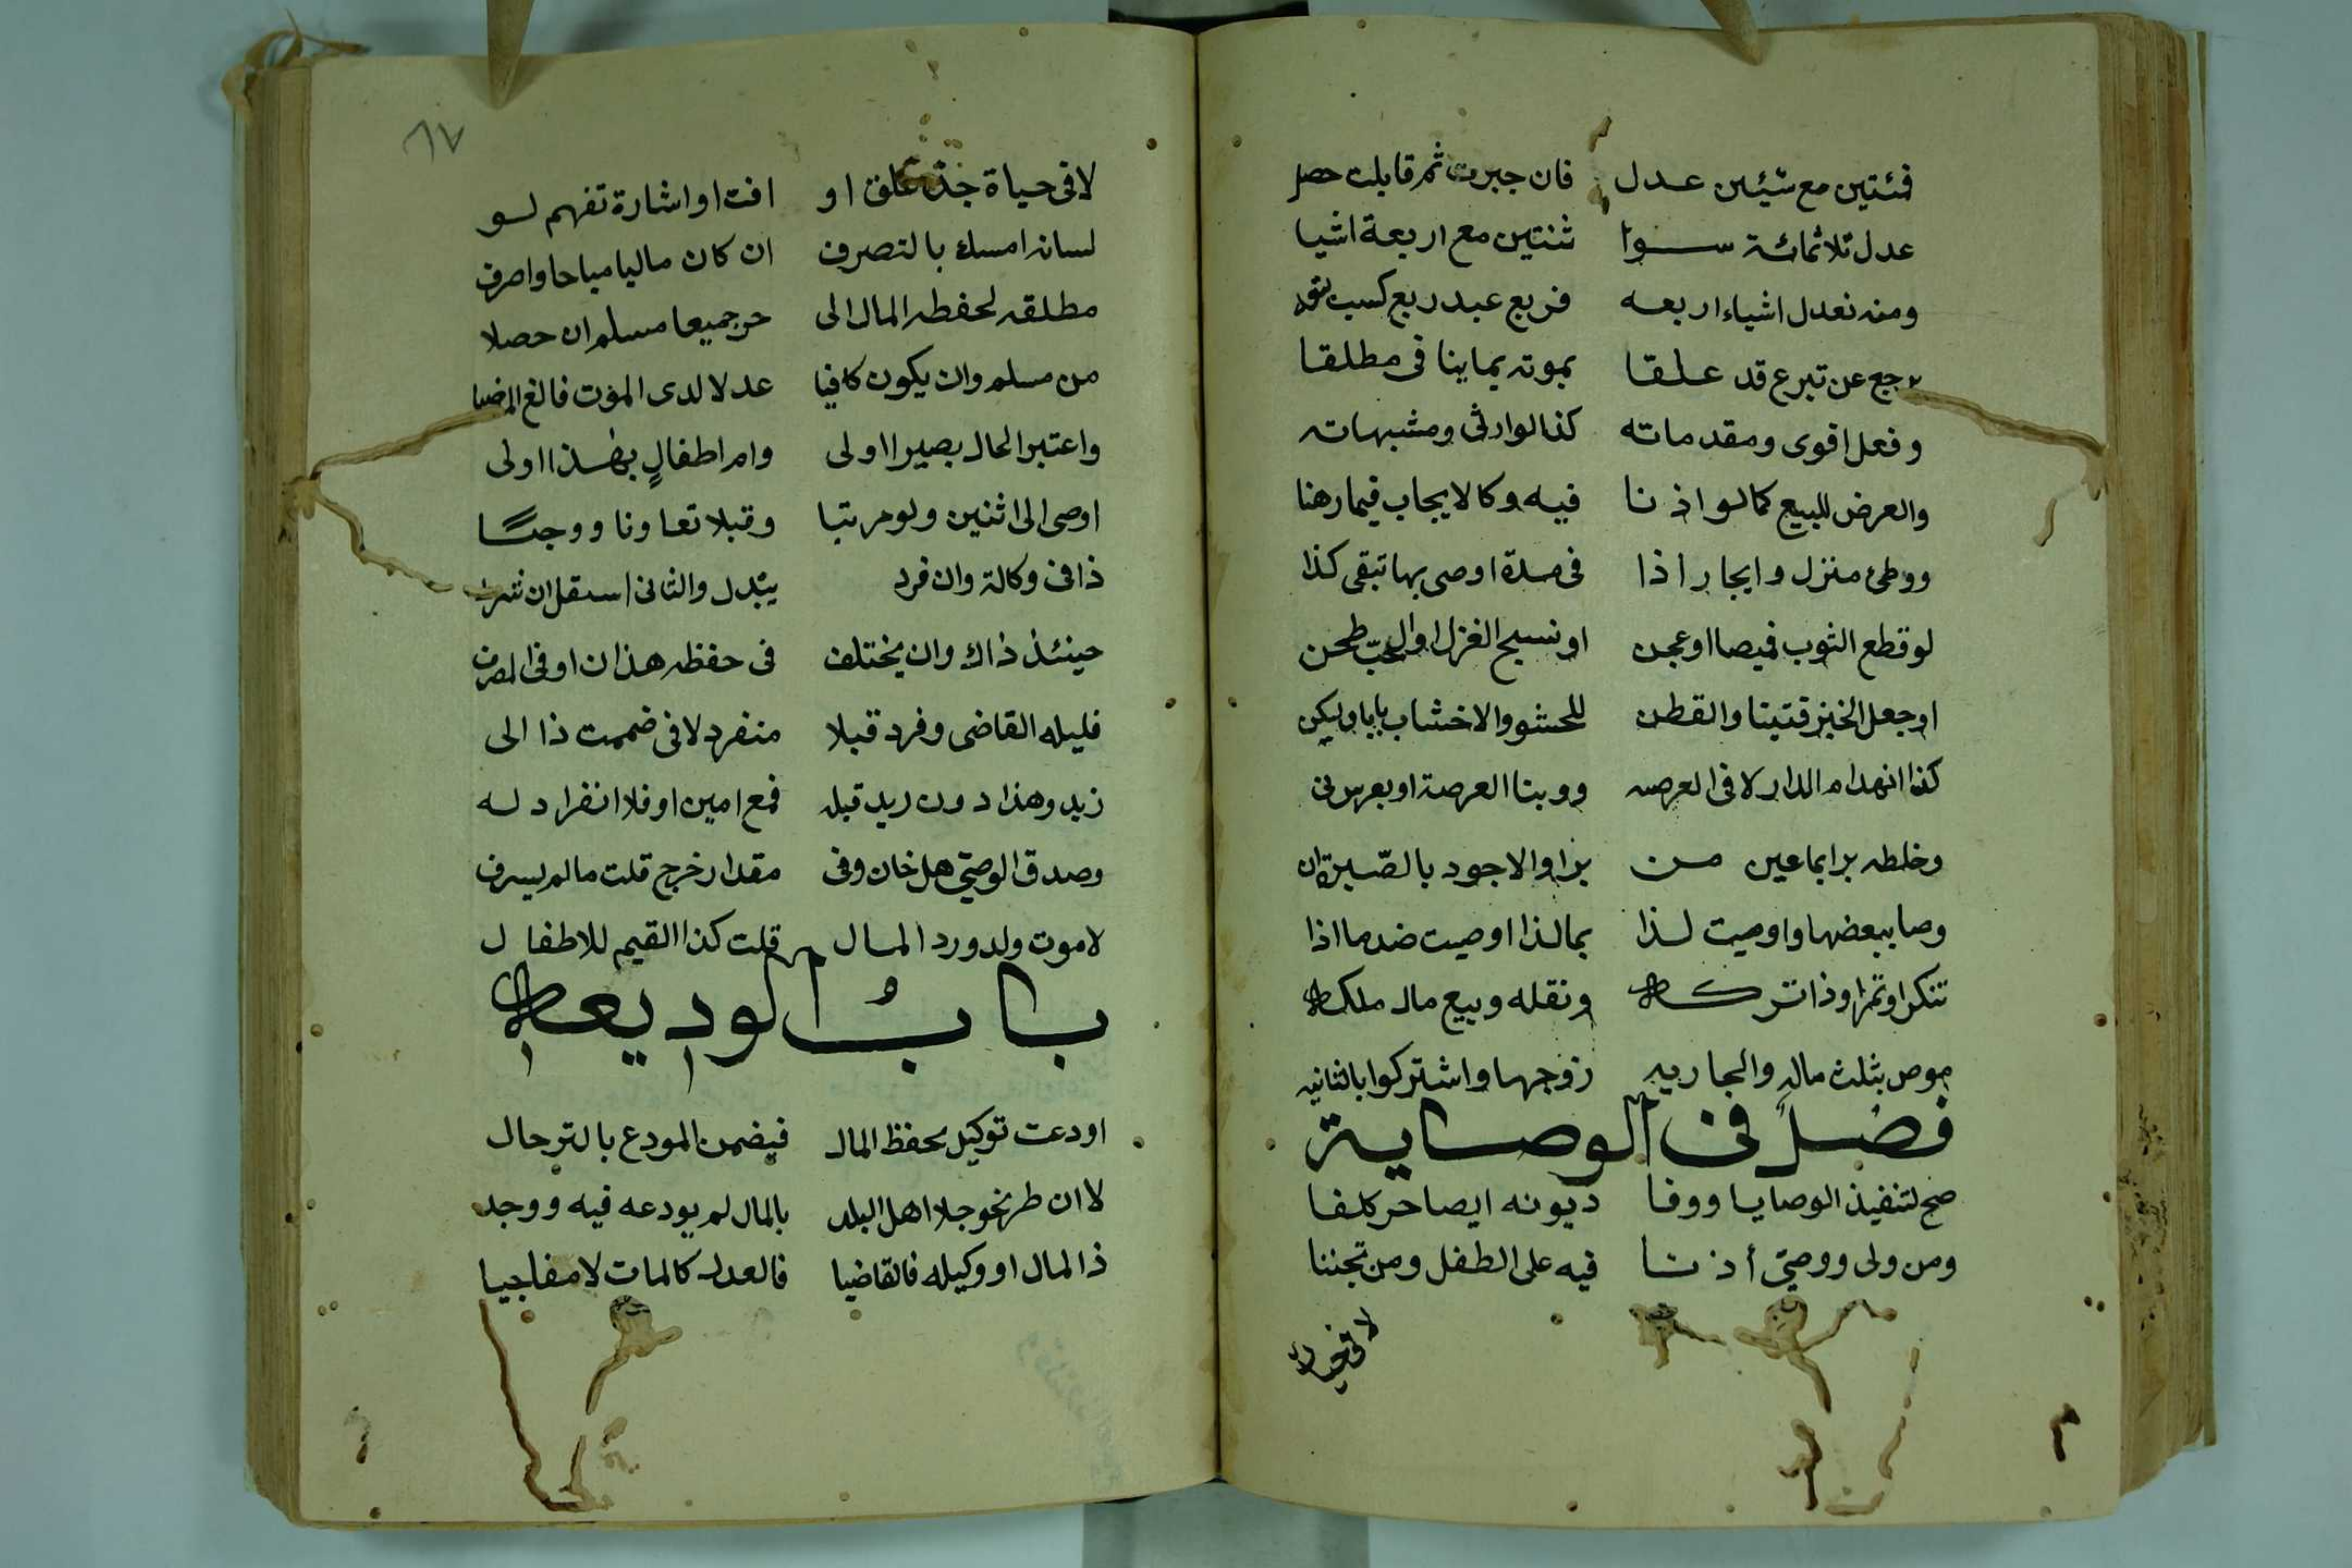 فئتين مع شيئين عدل فان جبرت ثم قابلت حصل
عدل ثلاثمائة سوا ثنتين مع اربعة اشيا
ومنه نعدل اشياء اربعه فربع عبد ربع كسب
يرجع عن تبرع قد علقا بموته بما ينافى مطلقا
وفعل اقوى ومقدماته كذا لوارثى ومشبهاته
والعرض للبيع كما لو اذنا فيه وكالايجاب فيما رهنا
ووطئ منزل وايجار اذا فى مدة اوصى بها تبقى كذا
لو قطع الثوب قميصا او عجن او نسج الغزل او الحب طحن
او جعل الخبز فتيتا والقطن للحشو والاخشاب بابا وليكن
كذا انهدام الدار لا فى العرصه وبنا العرصة او بغرس
وخلطه برا بما عين من برا والاجود بالصبرة ان
وصا ببعضها واوصيت لذا بما لذا اوصيت ضد ما اذا
تنكر او تمرا وذا تركه ونقله وبيع مال ملكه
موص بثلث ماله والجاريه زوجها واشتركوا بالثانيه
فصل فى الوصاية
صح لتنفيذ الوصايا ووفا ديونه ايصا حر كلفا
ومن ولى ووصى أذنا فيه على الطفل ومن تجننا
لا فى حياة
٨٧
لا فى حياة جد علق او افت او اشارة تفهم لو
لسانه امسك بالتصرف ان كان ماليا مباحا واصرف
مطلقه لحفظه المال الى حر جميعا مسلم ان حصلا
من مسلم وان يكون كافيا عدلا لدى الموت فالغ
واعتبر الحال بصيرا اولى وام اطفال بهذا اولى
اوصى الى اثنين ولو مرتبا وقبلا تعاونا ووجبا
ذا فى وكالة وان فرد يبدل والثانى استقل ان شرط
حينئذ ذاك وان يختلف فى حفظه هذان او فى المصرف
فليله القاضى وفرد قبلا منفرد لا فى ضممت ذا الى
زيد وهذا دون زيد قبله فمع امين او فلا انفراد له
وصدق الوصى هل خان وفى مقدار خرج قلت ما لم يسرف
لا موت ولد ورد المال قلت كذا القيم للاطفال
باب الوديعه
اودعت توكيل بحفظ المال فيضمن المودع بالترحال
لا ان طر نحو جلا اهل البلد بالمال لم يودعه فيه ووجد
ذا المال او وكيله فالقاضيا فالعدل كالمات لا مفاجيا